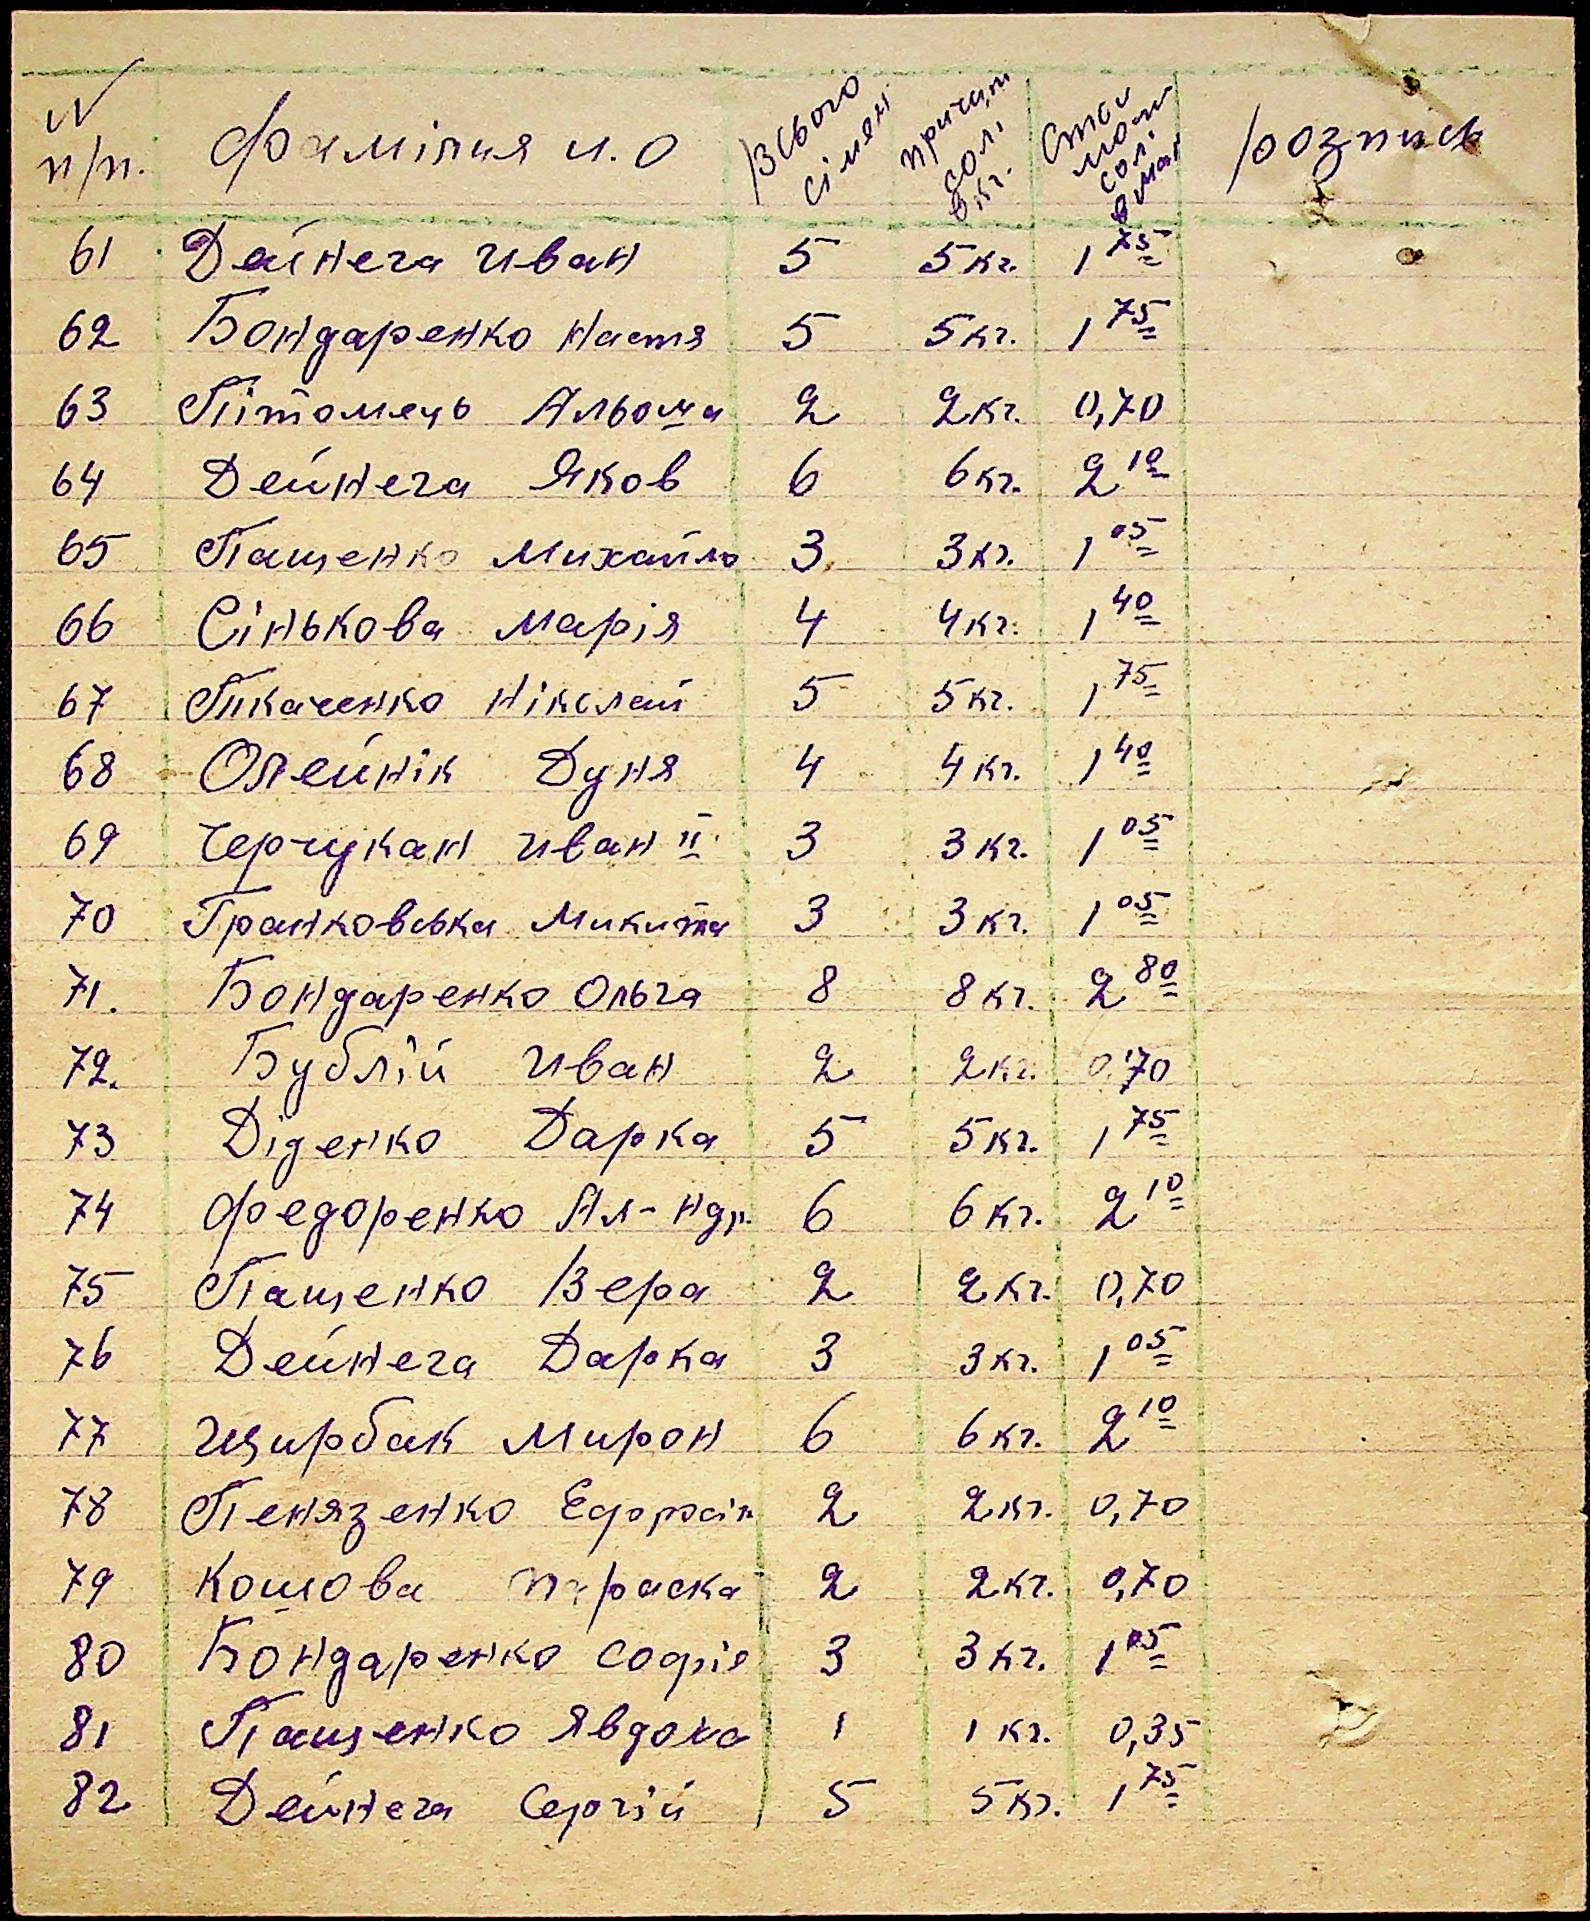 № п/п. Фамілия и. о Всього сімей причит солі в кг. Стои мост солі в мар розписк
61 Дейнега Иван 5 5 кг. 1 75
62 Бондаренко Настя 5 5 кг. 1 75
63 Пітомець Альоша 2 2 кг. 0,70
64 Дейнега Яков 6 6 кг. 2 10
65 Пащенко Михайло 3 3 кг. 1 05
66 Сінькова Марія 4 4 кг. 1 40
67 Ткаченко Ніколай 5 5 кг. 1 75
68 Олейнік Дуня 4 4 кг. 1 40
69 Черчукан Иван II 3 3 кг. 1 05
70 Гранковська Микита 3 3 кг. 1 05
71. Бондаренко Ольга 8 8 кг. 2 80
72. Бублій Иван 2 2 кг. 0,70
73 Діденко Дарка 5 5 кг. 1 75
74 Федоренко Ал-ндр. 6 6 кг. 2 10
75 Пащенко Вера 2 2 кг. 0,70
76 Дейнега Дарка 3 3 кг. 1 05
77 Щирбак Мирон 6 6 кг. 2 10
78 Пенязенко 2 2 кг. 0,70
79 Кошова Параска 2 2 кг. 0,70
80 Бондаренко Софія 3 3 кг. 1 05
81 Пащенко Явдоха 1 1 кг. 0,35
82 Дейнега Сергій 5 5 кг. 1 75